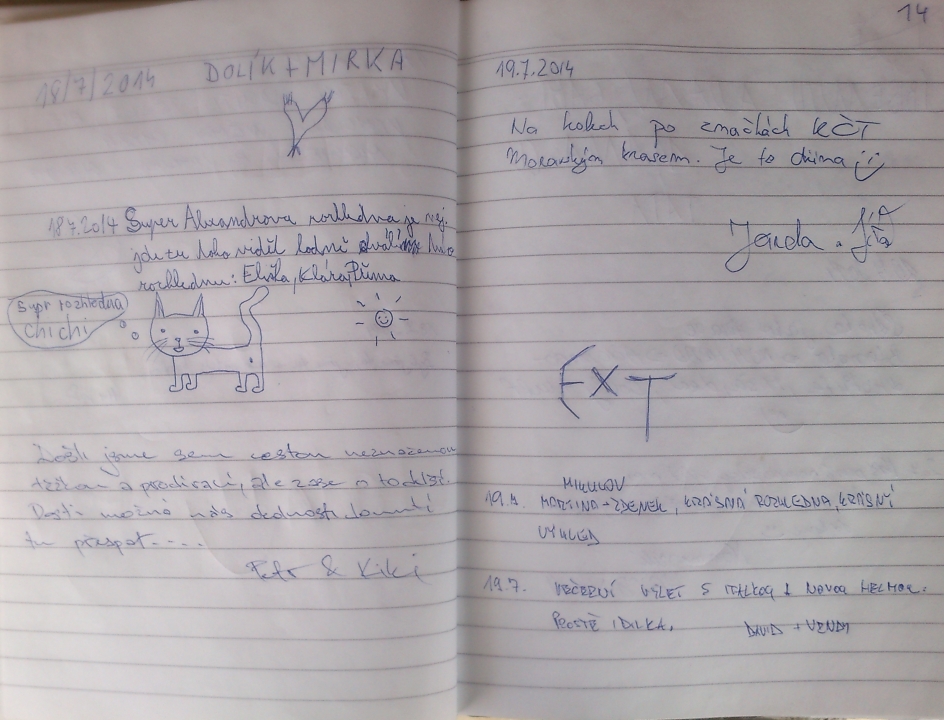 18/7/2014 DOLÍK + MIRKA
18.7.2014 Super Alexandrova rozhledna je nej.
jde tu toho vidět hodně
rozhlednu: Eliška, Klára,
Supr rozhledna
chichi
Došli jsme sem cestou neznačenou
těžkou a prodírací, ale zase o to
možná nás donutí
tu přespat.....
Petr & Kiki
14
19.7.2014
Na kolech po značkách KČT
Moravským krasem. Je to dřina
Jarda a Jíťa
EXT
MIKULOV
19.7. MARTINA + ZDENEK, KRÁSNÁ ROZHLEDNA, KRÁSNÍ
VÝHLED
19.7. VEČERNÍ VÝLET S ITALKOU A NOVOU HELMOU.
PROSTĚ IDILKA. DAVID + VENDY